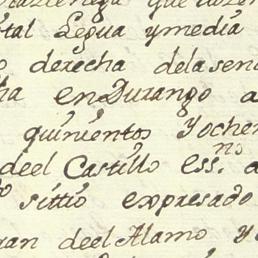 que
tal Legua ymedia
derecha dela send
en Durango a
quinientos Yochen
deel Castillo ess.no a
sittio expresado
deel Alamo y